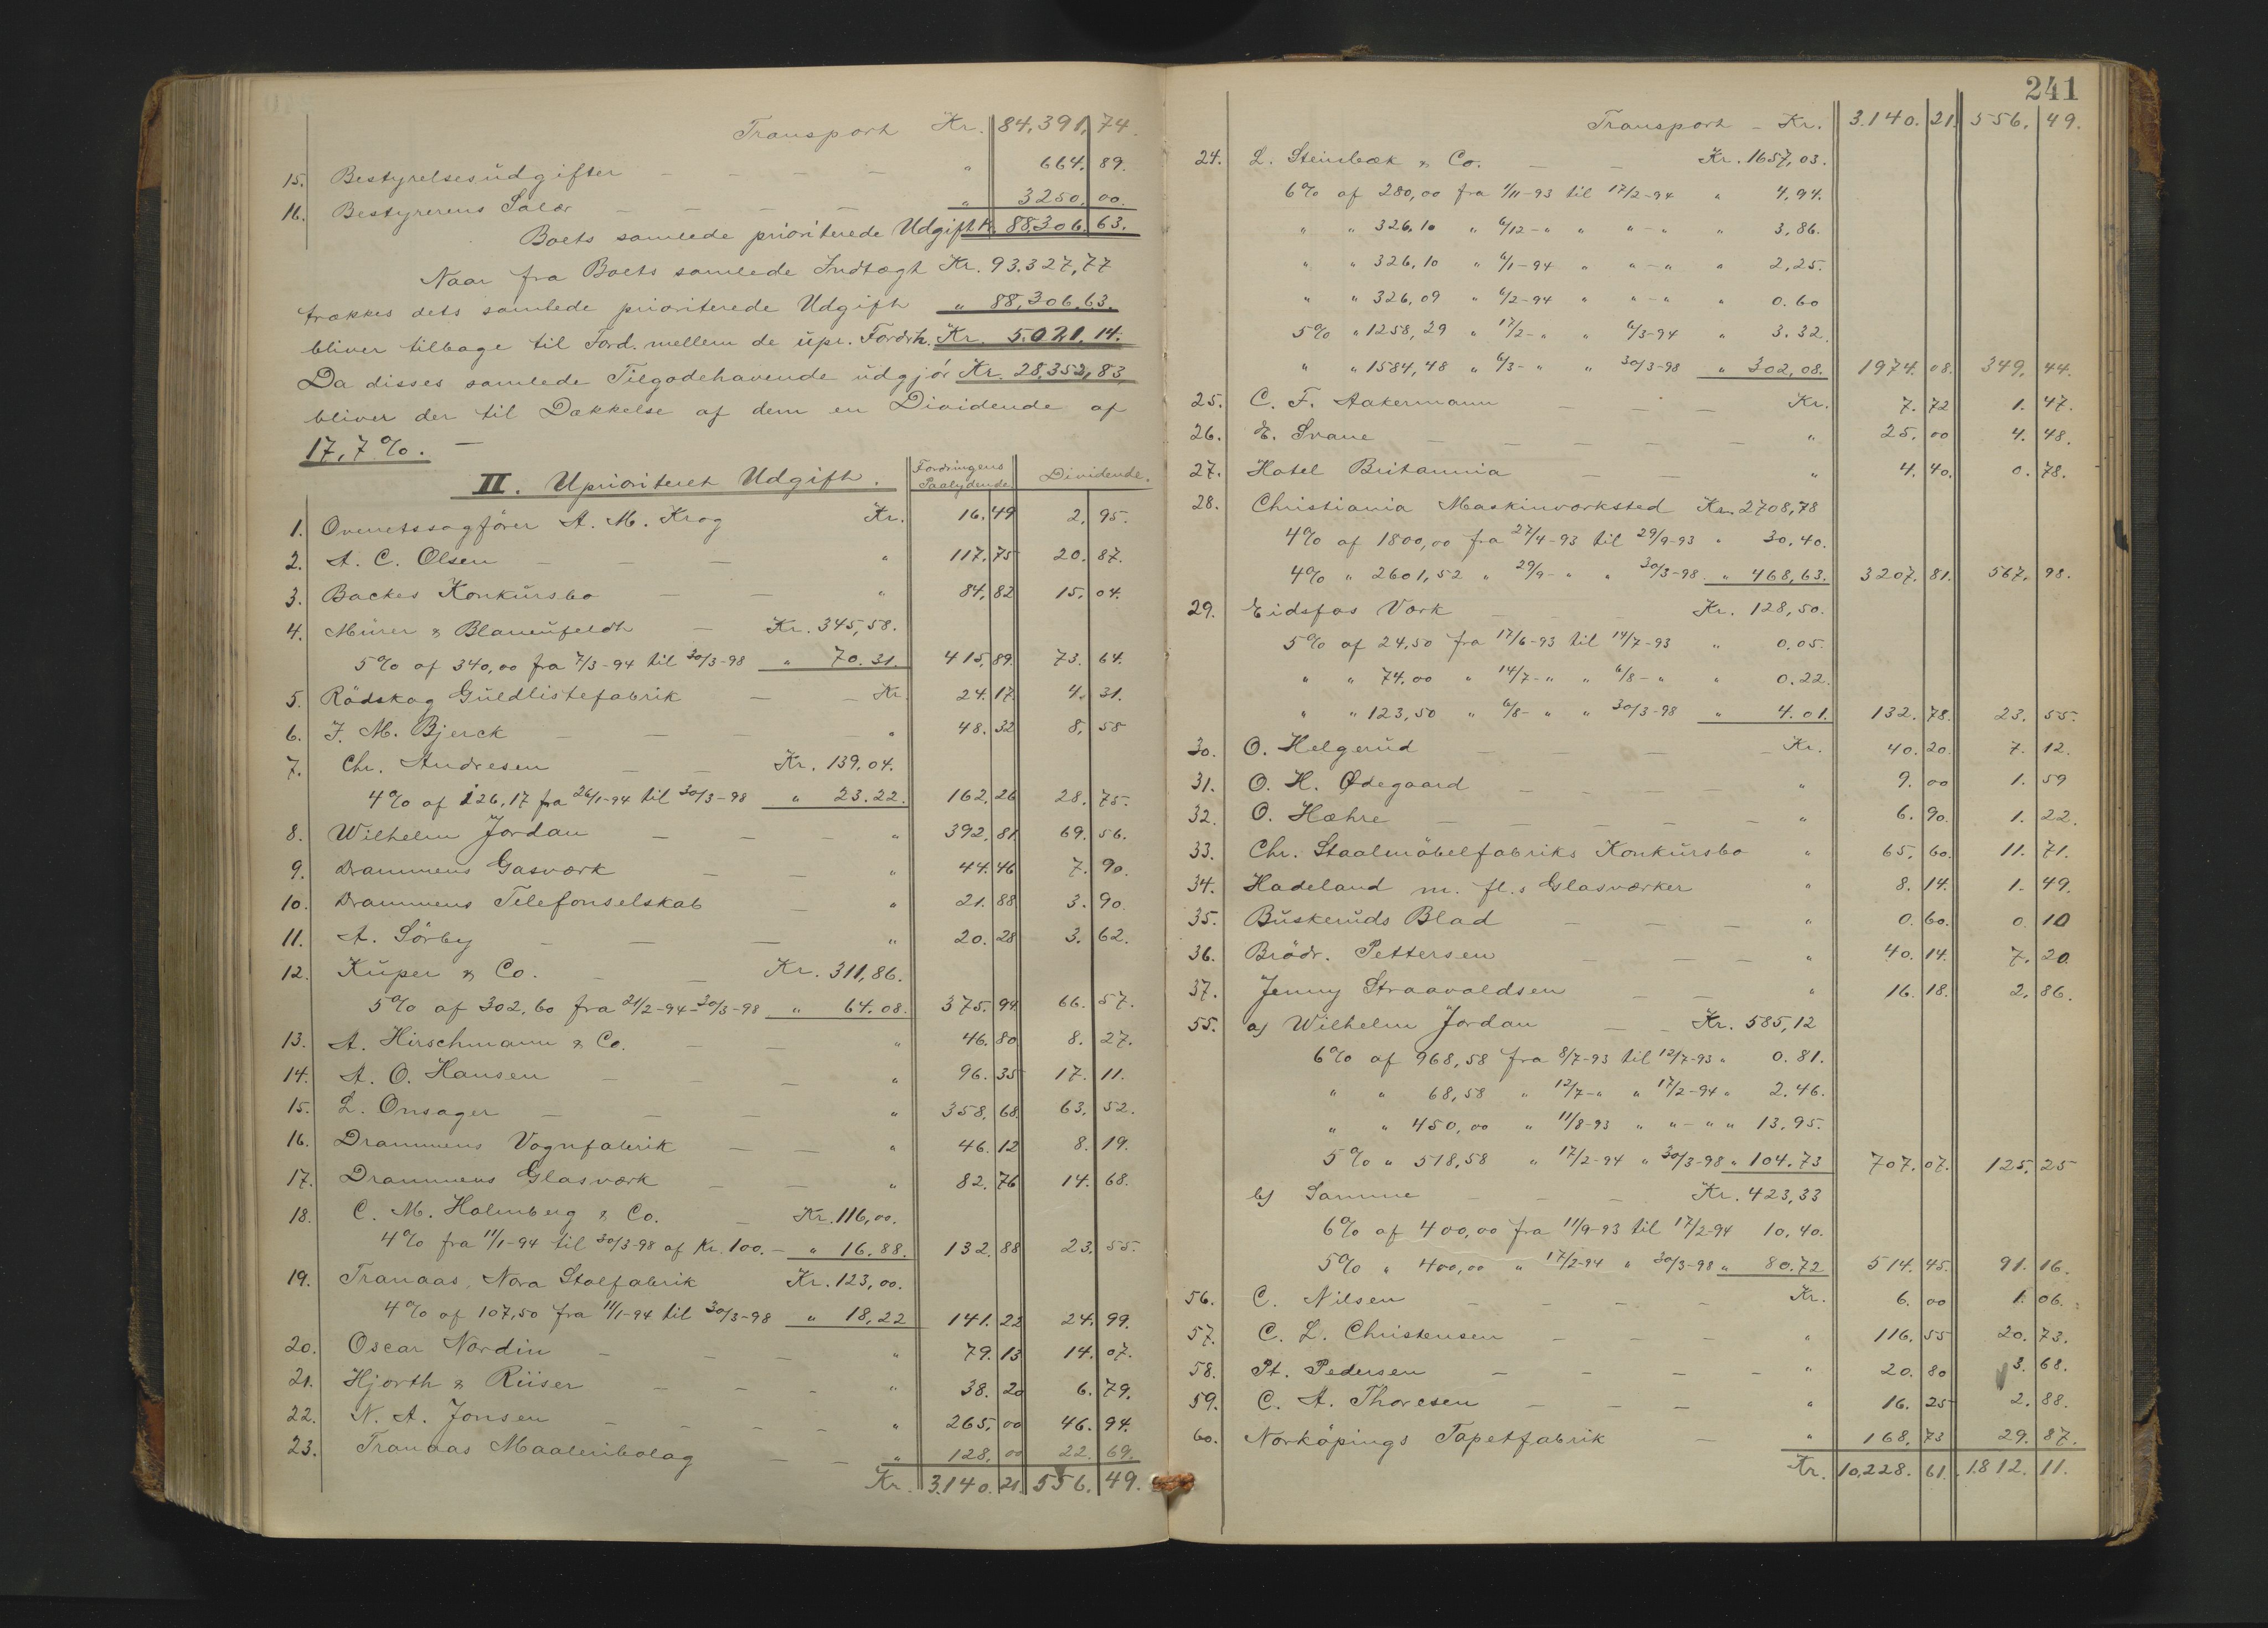 Transport Kr. 84,391,74.
15. Bestyrelsesudgifter — — — — " 664. 89.
16. Bestyrerens Salær — — — — " 3250, 00.
Boets samlede prioriterede Udgift Kr. 88,306. 63.
Naar fra Boets samlede Indtægt Kr. 93.327,77
trækkes dets samlede prioriterede Udgift " 88,306.63.
bliver tilbage til Ford. mellem de upr. Fordrh. Kr. 5.021.14.
Da disses samlede Tilgodehavende udgjør Kr. 28,352,83,
bliver der til Dækkelse af dem en Dividende af
17,7%. —
II. Uprioriteret Udgift. Fordringens Paalydende Dividende.
1. Overretssagfører A. M. Krog Kr. 16.49 2, 95.
2. A. C. Olsen — — — " 117.75 20. 87.
3. Backes Konkursbo — — " 84,82 15, 04.
4. Mürer & Blauenfeldt — Kr. 345,58.
5% af 340,00 fra 7/3-94 til 30/3-98 " 70.31. 415,89. 73. 64.
5. Rödskog Guldlistefabrik — — Kr. 24.17. 4. 31.
6. J. M. Bjerck — — — — " 48.32 8, 58
7. Chr. Andresen — — Kr. 139,04.
4% af 126,17 fra 26/1-94 til 30/3-98 " 23.22. 162,26 28. 75.
8. Wilhelm Jordan — — — " 392,81 69. 56.
9. Drammens Gasværk — — " 44.46 7. 90.
10. Drammens Telefonselskab — " 21.88 3. 90.
11. A. Sörby — — — " 20.28 3. 62.
12. Küper & Co. — — Kr. 311,86.
5% af 302,60 fra 21/2-94-30/3-98 " 64.08. 375.94 66. 57.
13. A. Hirschmann & Co. — — " 46.80 8. 27.
14. A. O. Hansen — — — " 96.35 17. 11.
15. L. Onsager — — — " 358,68. 63, 52.
16. Drammens Vognfabrik — — " 46.12 8. 19.
17. Drammens Glasværk — — " 82.76 14. 68.
18. C. M. Holmberg & Co. — Kr. 116,00.
4% fra 11/1-94 til 30/3-98 af Kr. 100.— " 16.88. 132.88 23. 55.
19. Tranaas, Nora Stolfabrik Kr. 123,00.
4% af 107,50 fra 11/1-94 til 30/3-98 " 18,22 141.22 24. 99.
20. Oscar Nordin — — — " 79.13 14. 07.
21. Hjorth & Riiser — — — " 38.20 6. 79.
22. N. A. Jonsen — — — — " 265,00 46. 94.
23. Tranaas Maaleribolag — — " 128,00 22. 69.
Kr. 3.140.21. 556. 49.
241
Transport — Kr. 3.140.21. 556. 49.
24. L. Steinbæk & Co. — — Kr. 1657,03.
6% af 280,00 fra 1/11-93 til 17/2-94 " 4,94.
" " 326,10 " 6/12-" " "-" " 3,86.
" " 326,10 " 6/1-94 " "-" " 2,25.
" " 326,09 " 6/2-94 " "-" " 0.60
5% " 1258,29 " 17/2-" " 6/3-94 " 3.32.
" " 1584,48 " 6/3-" " 30/3-98 " 302,08. 1974.08. 349, 44.
25. C. F. Aakermann — — — Kr. 7.72 1. 47.
26. E. Svane — — — — — " 25,00 4. 48.
27. Hotel Britannia — — " 4.40. 0. 78.
28. Christiania Maskinværksted Kr. 2708,78
4% af 1800,00 fra 27/4-93 til 29/9-93 " 30.40.
4% " 2601,52 " 29/9-" " 30/3-98. " 468,63. 3207.81. 567. 98.
29. Eidsfos Værk — — Kr. 128,50.
5% af 24,50 fra 17/6-93 til 14/7-93 " 0,05.
" " 74.00 " 14/7-" " 6/8-" " 0.22.
" " 123,50 " 6/8-" " 30/3-98 " 4.01. 132.78. 23. 55.
30. O. Helgerud — — — — Kr. 40.20. 7. 12.
31. O. H. Ødegaard — — — — " 9.00 1. 59
32. O. Hæhre — — — — — " 6.90. 1. 22.
33. Chr. Staalmöbelfabriks Konkursbo " 65,60. 11. 71.
34. Hadeland m. fl.s Glasværker " 8.14. 1. 49.
35. Buskeruds Blad — — — " 0.60. 0. 10
36. Brödr. Pettersen — — — " 40.14. 7. 20
37. Jenny Straavaldsen — — " 16.18. 2. 86.
55. a) Wilhelm Jordan — — Kr. 585,12
6% af 968,58 fra 8/7-93 til 12/7-93 " 0.81.
" " 68,58 " 12/7-" " 17/2-94 " 2.46.
" " 450,00 " 11/8-93 " "-" " 13,95.
5% " 518,58 " 17/2-94 " 30/3-98 " 104.73 707.07. 125, 25
b) Samme — — — Kr. 423,33
6% af 400,00 fra 11/9-93 til 17/2-94 10,40.
5% " 400,00 " 17/2-94 " 30/3-98 " 80.72 514.45. 91. 16.
56. C. Nilsen — — — — Kr. 6.00 1. 06.
57. C. L. Christensen — — — " 116.55 20. 73.
58. Pt. Pedersen — — — — " 20.80 3. 68.
59. C. A. Thoresen — — — " 16.25 2. 88.
60. Norköpings Tapetfabrik — " 168,73 29. 87.
Kr. 10,228.61. 1.812. 11.